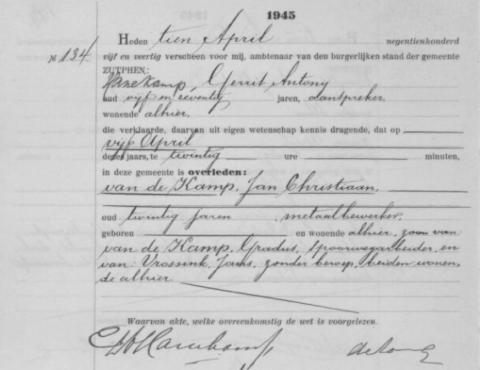 1945
Heden tien April negentienhonderd
№ 134 vijf en veertig verscheen voor mij, ambtenaar van den burgerlijken stand der gemeente
ZUTPHEN:
Gerrit Antony
oud vijf en zeventig jaren, aanspreker,
wonende alhier,
die verklaarde, daarvan uit eigen wetenschap kennis dragende, dat op
vijf April
dezes jaars, te twintig ure minuten,
in deze gemeente is overleden:
van de Kamp, Jan Christiaan,
oud twintig jaren metaalbewerker,
geboren en wonende alhier, zoon van
van de Kamp, Gradus, spoorwegarbeider, en
van Vrossink, zonder beroep, beiden wonen-
de alhier
Waarvan akte, welke overeenkomstig de wet is voorgelezen.